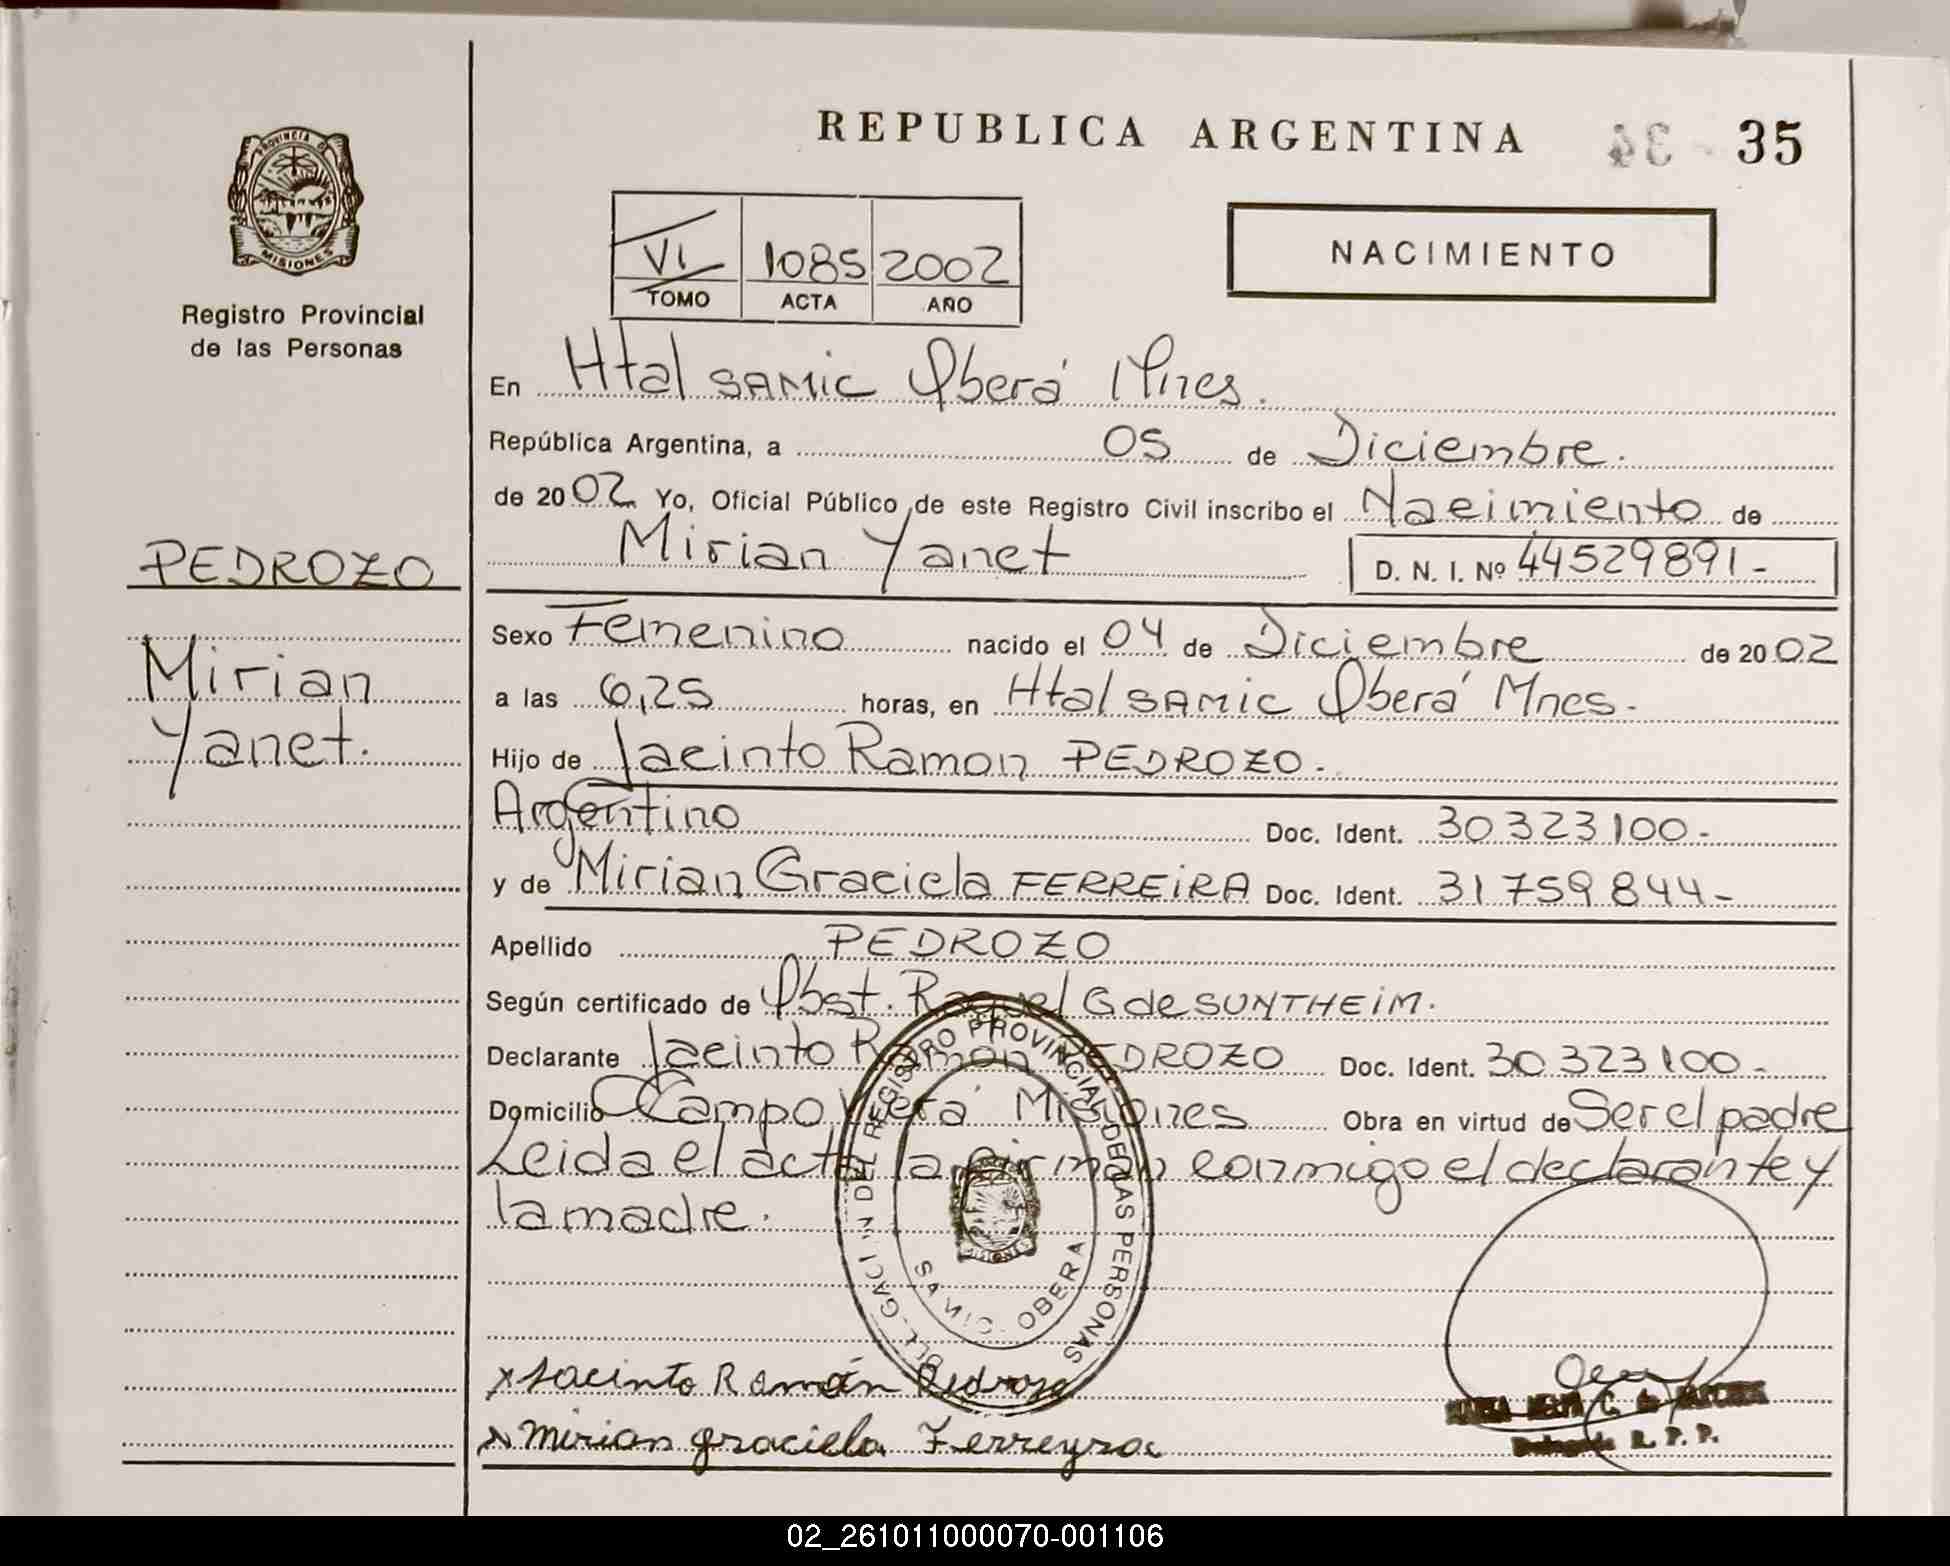 REPUBLICA ARGENTINA 35
PROVINCIA DE
MISIONES
Registro Provincial
de las Personas
VI 1085 2002
TOMO ACTA AÑO
NACIMIENTO
En Htal SAMIC Oberá Mnes.
República Argentina, a 05 de Diciembre.
de 2002 Yo, Oficial Público de este Registro Civil inscribo el Nacimiento de
Mirian Yanet D. N. I. Nº 44529891-
PEDROZO
Mirian
Yanet.
Sexo Femenino nacido el 04 de Diciembre de 2002
a las 6,25 horas, en Htal SAMIC Oberá Mnes.
Hijo de Jacinto Ramon PEDROZO.
Argentino Doc. Ident. 30.323.100.-
y de Mirian Graciela FERREIRA Doc. Ident. 31 759 844-
Apellido PEDROZO
Según certificado de Obst. Raquel G de SUNTHEIM.
Declarante Jacinto Ramon PEDROZO Doc. Ident. 30 323 100-
Domicilio Campo Viera Misiones Obra en virtud de Ser el padre
Leida el acta la firman conmigo el declarante y
la madre.
DELEGACION DEL REGISTRO PROVINCIAL DE LAS PERSONAS
SAMIC OBERA
MISIONES
x Jacinto Ramón Pedrozo
x mirian graciela Ferreyra
C. de
R. P. P.
02_261011000070-001106